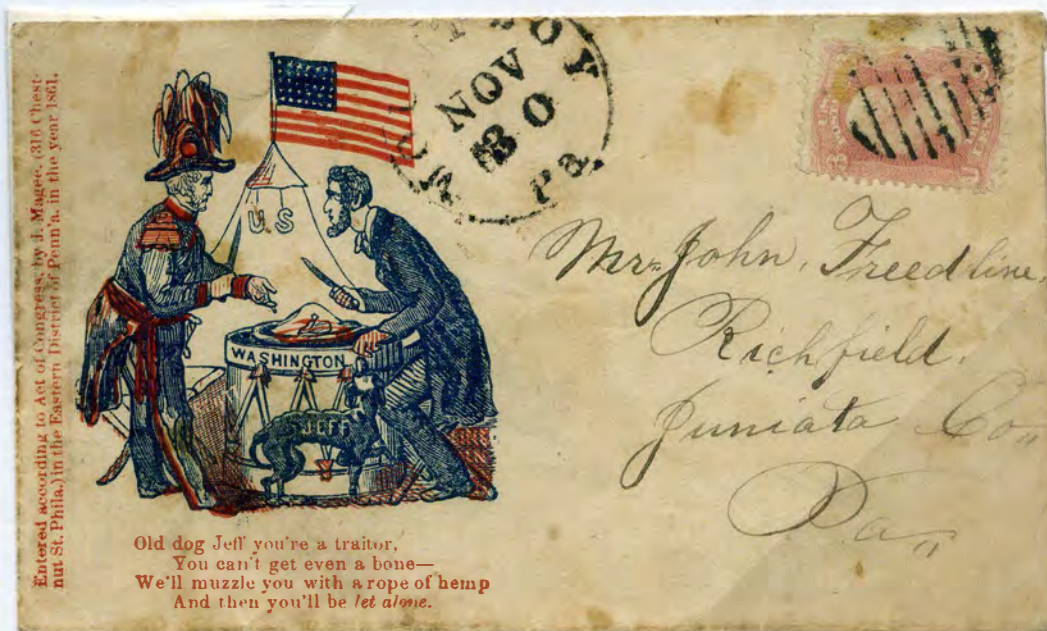 Entered according to Act of Congress, by J. Magee. (316 Chest-
nut St. Phila.) in the Eastern District of Penn'a. in the year 1861.
U.S
WASHINGTON
JEFF
Old dog Jeff you're a traitor,
You can't get even a bone—
We'll muzzle you with a rope of hemp
And then you'll be let alone.
NOV
30
Pa
3
Mr John, Freedline,
Richfield,
Juniata Co,,
Pa,,